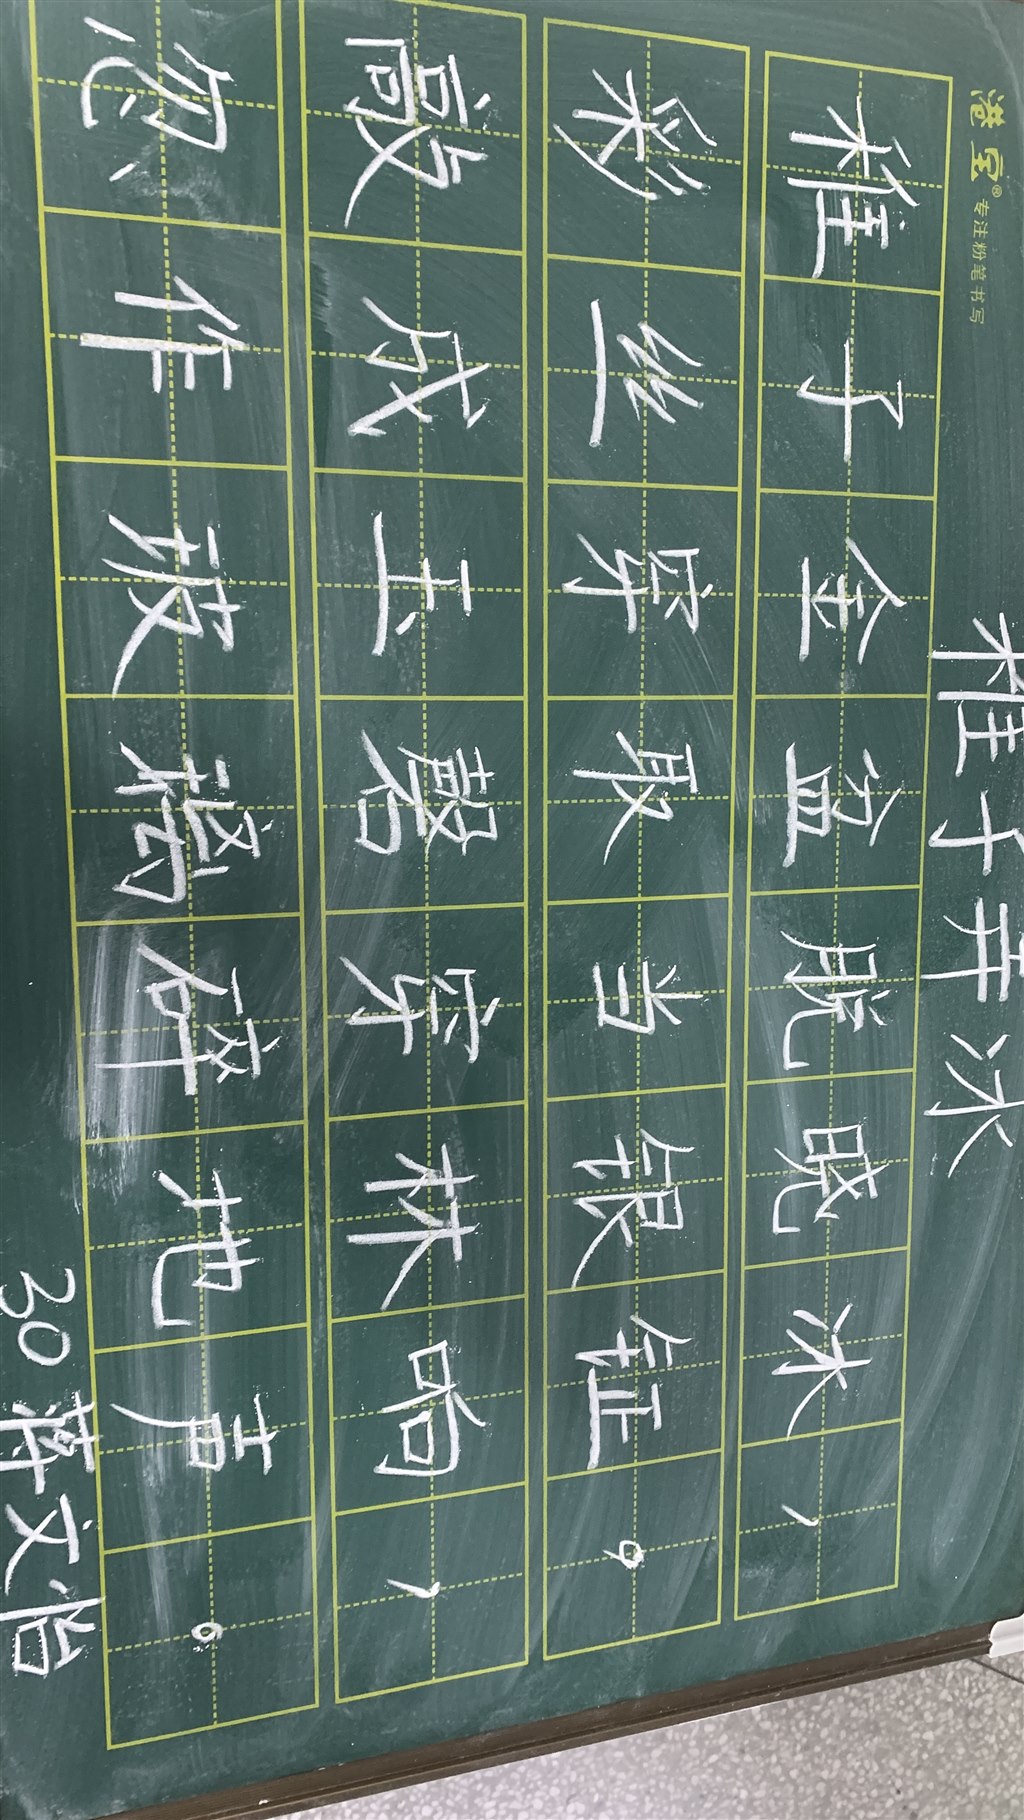 港宝® 专注粉笔书写
稚子弄冰
稚子金盆脱晓冰，
彩丝穿取当银钲。
敲成玉磬穿林响，
忽作玻璃碎地声。
30 蒋文怡